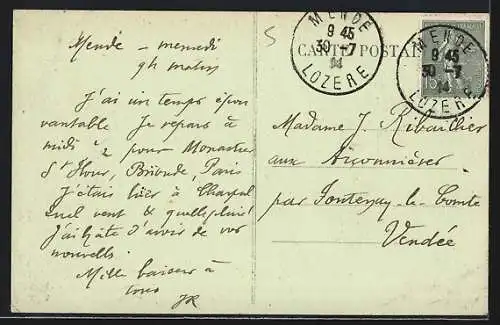 Mende – mercredi
9h matin
J'ai un temps épou
vantable Je repars à
midi à 2 pour Monastier
St Flour, Brioude, Paris
J'étais hier à
quel vent & quelle pluie!
J'ai hâte d'avoir de vos
nouvelles.
Mille baisers à
tous
JR
5
CARTE POSTALE
MENDE
9 45
30 -7
14
LOZERE
MENDE
9 45
30 -7
14
LOZERE
15
Madame J. Ribaillier
aux
par Fontenay-le-Comte
Vendée